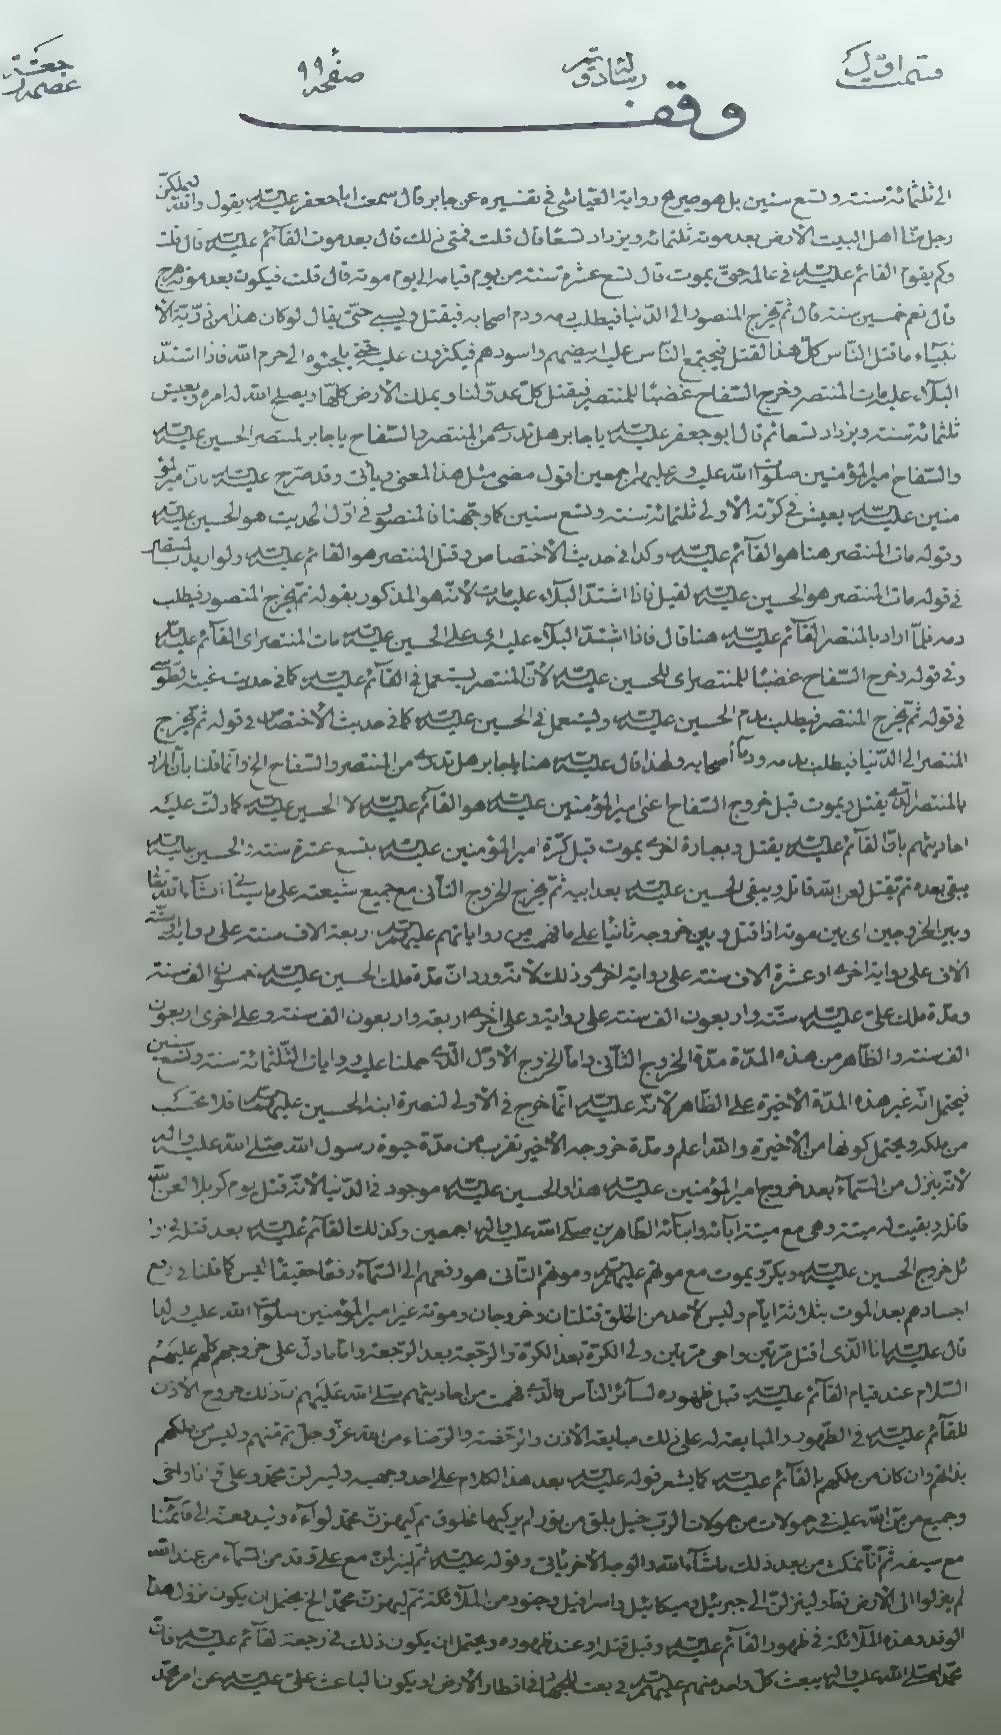 قسمت اول رسالة صفحه ٩٩
وقف
الى ثلثمائة سنة وتسع سنين بل هو صريح رواية العياشى فى تفسيره عن جابر قال سمعت ابا جعفر عليه السلم يقول والله ليملكن
رجل منا اهل البيت الارض بعد موته ثلثمائة ويزداد تسعا قال قلت فمتى ذلك قال بعد موت القائم عليه السلم قال قلت
وكم يقوم القائم عليه السلم فى عالمه حتى يموت قال تسع عشرة سنة من يوم قيامه الى يوم موته قال قلت فيكون بعد موته هرج
قال نعم خمسين سنة قال ثم يخرج المنصور الى الدنيا فيطلب دمه ودم اصحابه فيقتل ويسبى حتى يقال لو كان هذا من ذرية الأ
نبياء ما قتل الناس كل هذا القتل فيجتمع الناس عليه ابيضهم واسودهم فيكثرون عليه حتى يلجئوه الى حرم الله فاذا اشتد
البلاء عليه مات المنتصر وخرج السفاح غضبا للمنتصر فيقتل كل عدو لنا ويملك الارض كلها ويصلح الله له امره ويعيش
ثلثمائة سنة ويزداد تسعا ثم قال ابو جعفر عليه السلم يا جابر هل تدرى من المنتصر والسفاح يا جابر المنتصر الحسين عليه السلم
والسفاح امير المؤمنين صلوات الله عليه وعليهم اجمعين اقول مضى مثل هذا المعنى ويأتى وقد صرح عليه السلم بان امير المؤ
منين عليه السلم يعيش فى كرته الاولى ثلثمائة سنة وتسع سنين كما وجهنا فالمنصور فى اول الحديث هو الحسين عليه السلم
وقوله مات المنتصر هنا هو القائم عليه السلم وكذا فى حديث الاختصاص وقتل المنتصر هو القائم عليه السلم ولو اريد بالمنتصر
فى قوله مات المنتصر هو الحسين عليه السلم لقيل فاذا اشتد البلاء عليه مات لانه هو المذكور بقوله ثم يخرج المنصور فيطلب
دمه فلما اراد بالمنتصر القائم عليه السلم هنا قال فاذا اشتد البلاء عليه اى على الحسين عليه السلم مات المنتصر اى القائم عليه السلم
وفى قوله وخرج السفاح غضبا للمنتصر اى للحسين عليه السلم لأن المنتصر يستعمل فى القائم عليه السلم كما فى حديث غيبة الطوسى
فى قوله ثم يخرج المنتصر فيطلب بدم الحسين عليه السلم ويستعمل فى الحسين عليه السلم كما فى حديث الاختصاص فى قوله ثم يخرج
المنتصر الى الدنيا فيطلب بدمه ودماء اصحابه ولهذا قال عليه السلم هنا يا جابر هل تدرى من المنتصر والسفاح الخ وانما قلنا بأن المراد
بالمنتصر الذى يقتل ويموت قبل خروج السفاح اعنى امير المؤمنين عليه السلم هو القائم عليه السلم لا الحسين عليه السلم كما دلت عليه
احاديثهم بان القائم عليه السلم يقتل وبعبارة اخرى يموت قبل كرة امير المؤمنين عليه السلم بتسع عشرة سنة والحسين عليه السلم
يبقى بعده ثم يقتل لعن الله قاتله ويبقى الحسين عليه السلم بعد ابيه ثم يخرج الخروج الثانى مع جميع شيعته على ما سيأتى انشاء الله تعالى
وبين الخروجين اى بين موته اذا قتل وبين خروجه ثانيا على ما فهمت من رواياتهم عليهم السلم اربعة الاف سنة على رواية او ستة
الاف على رواية اخرى او عشرة الاف سنة على رواية اخرى وذلك لانه ورد ان مدة ملك الحسين عليه السلم خمسون الف سنة
ومدة ملك على عليه السلم ستة واربعون الف سنة على رواية وعلى اخرى اربعة واربعون الف سنة وعلى اخرى اربعون
الف سنة والظاهر من هذه المدة مدة الخروج الثانى واما الخروج الاول الذى حملنا عليه روايات الثلثمائة سنة وتسع سنين
فيحتمل انه غير هذه المدة الاخيرة على الظاهر لانه عليه السلم انما خرج فى الاولى لنصرة ابنه الحسين عليهما السلم فلا تحسب
من ملكه ويحتمل كونها من الاخيرة والله اعلم ومدة خروجه الاخير تقرب من مدة حيوة رسول الله صلى الله عليه واله
لانه ينزل من السماء بعد خروج امير المؤمنين عليه السلم هذا والحسين عليه السلم موجود فى الدنيا لانه قتل يوم كربلا لعن الله
قاتله وبقيت له ميتة وهى مع ميتة ابائه وابنائه الطاهرين صلى الله عليه واله اجمعين وكذلك القائم عليه السلم بعد قتله فى اوا
ئل خروج الحسين عليه السلم ويكر ويموت مع موتهم عليهم السلم وموتهم الثانى هو رفعهم الى السماء رفعا حقيقيا ليس كما قلنا فى رفع
اجسادهم بعد الموت بثلاثة ايام وليس لاحد من الخلق قتلتان وخروجان وموتة غير امير المؤمنين صلوات الله عليه ولذا
قال عليه السلم انا الذى اقتل مرتين واحى مرتين ولى الكرة بعد الكرة والرجعة بعد الرجعة واما ما دل على خروجهم كلهم عليهم
السلام عند قيام القائم عليه السلم قبل ظهوره لسائر الناس فالذى فهمت من احاديثهم صلى الله عليهم ان ذلك خروج الاذن
للقائم عليه السلم فى الظهور والمبايعة له على ذلك مبايعة الاذن والرخصة والرضاء من الله عز وجل ثم منهم وليس من ملكهم
بذاتهم وان كان من ملكهم بالقائم عليه السلم كما يشعر قوله عليه السلم بعد هذا الكلام على احد وجهيه ولينزلن محمد وعلى وانا واخى
وجميع من من الله عليه فى حمولات من حمولات الرب خيل بلق من نور لم يركبها مخلوق ثم ليهزن محمد لواءه وليدفعنه الى قائمنا
مع سيفه ثم انا نمكث من بعد ذلك ما شاء الله والوجه الاخر يأتى وقوله عليه السلم ثم لينزلن مع على وفد من السماء من عند الله
لم ينزلوا الى الارض قط ولينزلن الى جبرئيل وميكائيل واسرافيل وجنود من الملائكة ثم ليهزن محمد الخ يحتمل ان يكون نزول هذا
الوفد وهذه الملائكة فى ظهور القائم عليه السلم وقبل قتله او عند ظهوره ويحتمل ان يكون ذلك فى رجعة القائم عليه السلم فان
محمدا صلى الله عليه واله يبعث كل واحد منهم عليهم السلم فى بعث للجهاد فى اقطار الارض او يكون الباعث على عليه السلم عن امر محمد